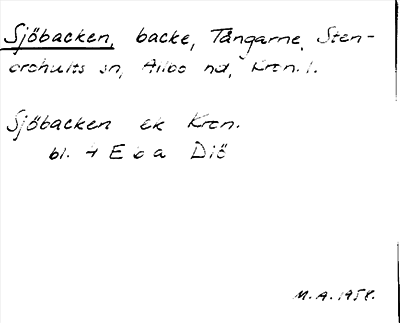 Sjöbacken, backe, Tångarne, Sten-
brohults sn, Allbo hd, Kron. l.
Sjöbacken ek Kron.
bl. 4 E b a Diö
M.A. 1958.